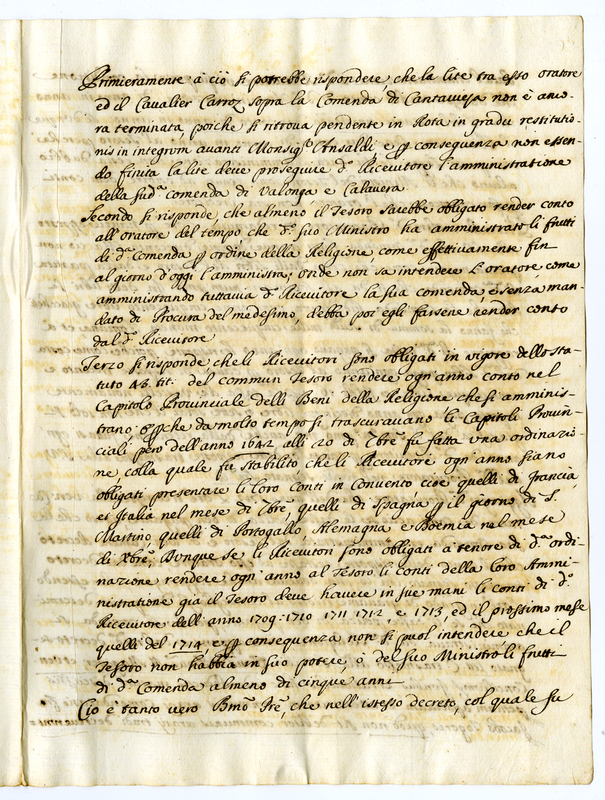 Primieramente à ciò si potrebbe rispondere, che la lite tra esso oratore
ed il Cavalier Carroz sopra la Comenda di Cantavieja non è anco-
ra terminata, poiche si ritrova pendente in Rota in gradu restitutio-
nis in integrum avanti Monsig.r Ansaldi e p consequenza non essen-
do finita la lite deve proseguire d.o Ricevitore l'amministratione
della sud.a comenda di Valonga e Calavera.
Secondo si risponde, che almeno il Tesoro sarebbe obligato render conto
all'oratore del tempo che d.o suo Ministro ha amministrato li frutti
di d.a Comenda p ordine della Religione, come effettivamente fin
al giorno d'oggi l'amministra; onde non sa intendere l'oratore come
amministrando tuttavia d.o Ricevitore la sua comenda, e senza man-
dato di Procura del medesimo, debba poi egli farsene render conto
dal d.o Ricevitore
Terzo si risponde che li Ricevitori sono obligati in vigore dello sta-
tuto 43. tit: del commun Tesoro rendere ogn'anno conto nel
Capitolo Provinciale delli Beni della Religione che si amminis-
trano e pche da molto tempo si trascuravano li Capitoli Provin-
ciali però dell'anno 1642 alli 20 di 7bre fu fatta una ordinazio-
ne colla quale fu stabilito, che li Ricevitori ogn'anno siano
obligati presentare li loro Conti in Convento cioè quelli di Francia
et Italia nel mese di 7bre, quelli di Spagna p il giorno di S.
Martino, quelli di Portogallo, Alemagna e Boemia nel mese
di Xbre, Dunque se li Ricevitori sono obligati à tenore di d.a ordi-
nazione rendere ogn'anno al Tesoro li conti della loro Ammi-
nistratione già il Tesoro deve havere in sue mani li conti di d.o
Ricevitore dell'anno 1709. 1710 1711 1712, e 1713, ed il prossimo mese
quelli del 1714, e p consequenza non si puol intendere che il
Tesoro non habbia in suo potere, ò del suo Ministro li frutti
di d.a Comenda almeno di cinque anni
Ciò è tanto vero Bmo Pre, che nell'istesso decreto, col quale fu